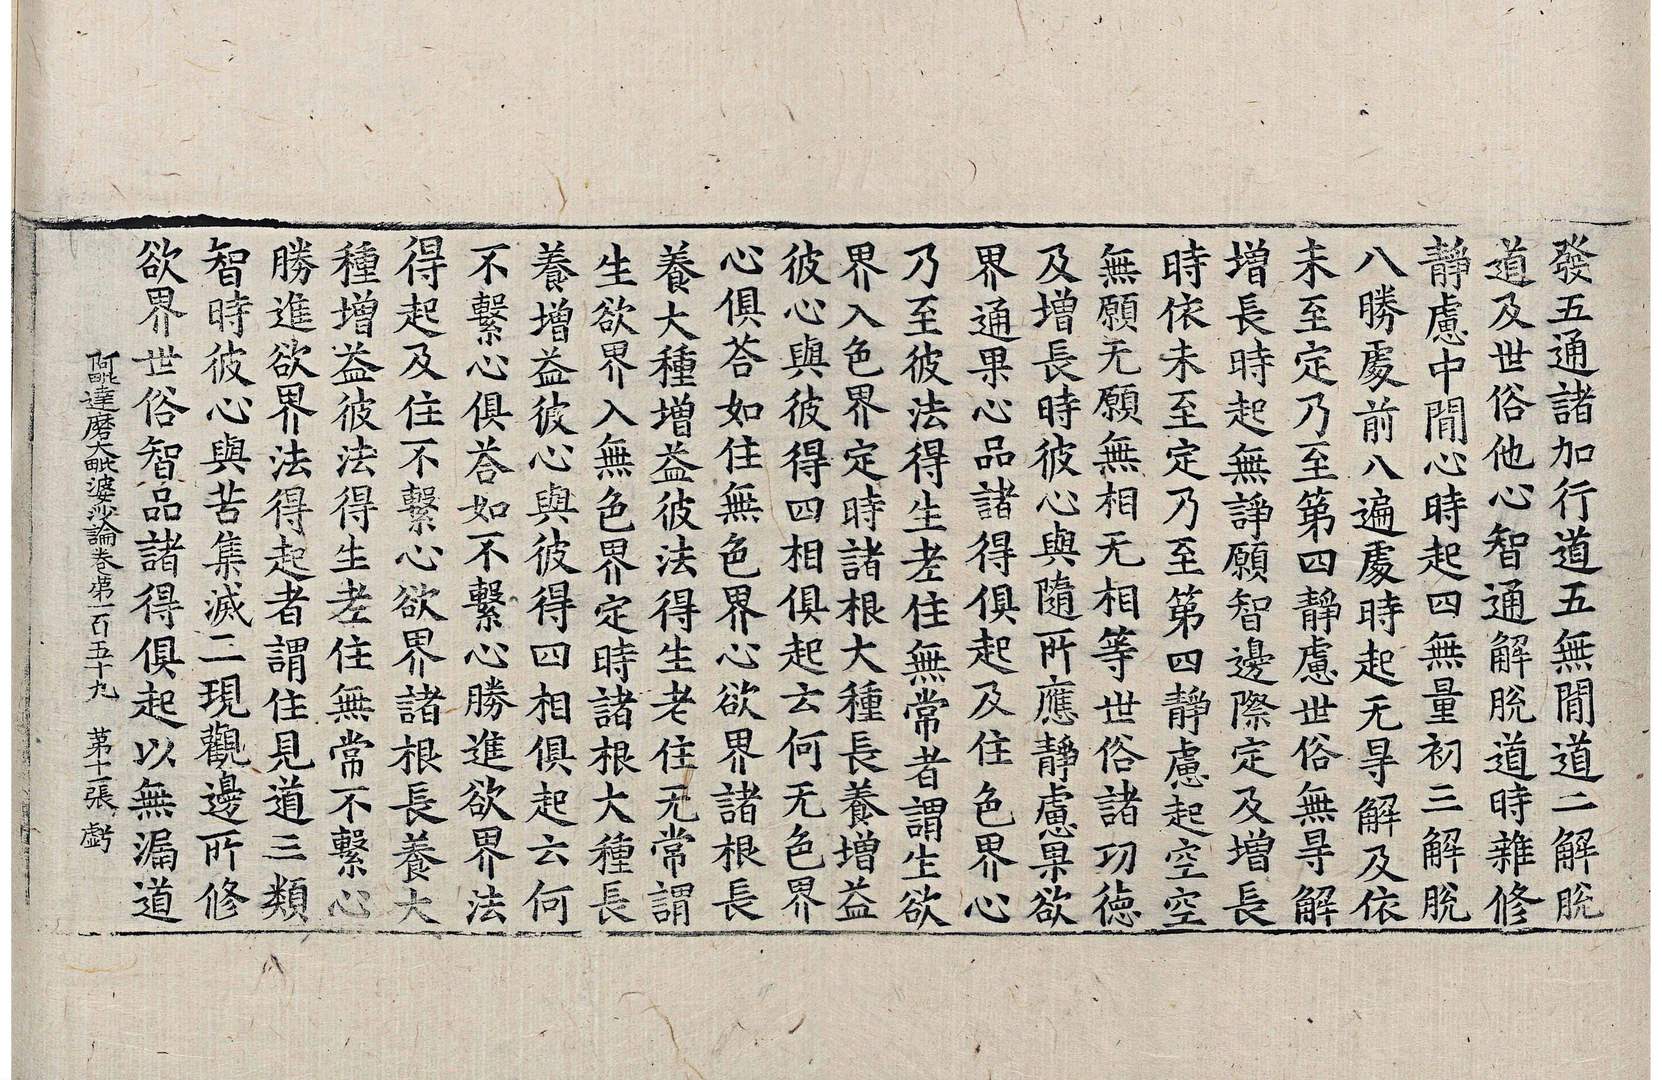 發五通諸加行道五無間道二解脫
道及世俗他心智通解脫道時雜修
靜慮中間心時起四無量初三解脫
八勝處前八遍處時起无㝵解及依
未至定乃至第四靜慮世俗無㝵解
增長時起無諍願智邊際定及增長
時依未至定乃至第四靜慮起空空
無願无願無相无相等世俗諸功德
及增長時彼心與隨所應靜慮果欲
界通果心品諸得俱起及住色界心
乃至彼法得生老住無常者謂生欲
界入色界定時諸根大種長養增益
彼心與彼得四相俱起云何无色界
心俱荅如住無色界心欲界諸根長
養大種增益彼法得生老住无常謂
生欲界入無色界定時諸根大種長
養增益彼心與彼得四相俱起云何
不繫心俱荅如不繫心勝進欲界法
得起及住不繫心欲界諸根長養大
種增益彼法得生老住無常不繫心
勝進欲界法得起者謂住見道三類
智時彼心與苦集滅二現觀邊所修
欲界世俗智品諸得俱起以無漏道
阿毗達磨大毗婆沙論卷第一百五十九　第十一張　虧